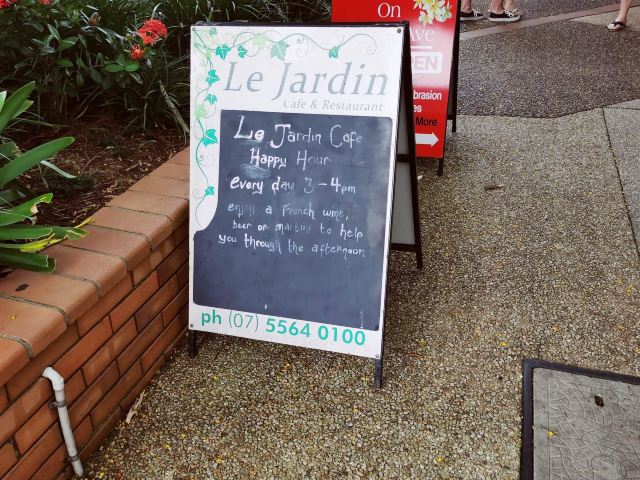 Le Jardin
Cafe & Restaurant
Le Jardin Cafe
Happy Hour
every day 3-4pm
enjoy a French wine,
beer or martini to help
you through the afternoon
ph (07) 5564 0100
On
Ave
OPEN
More